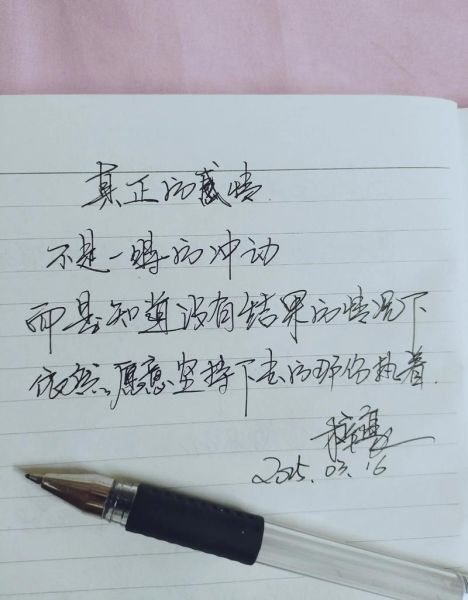 真正的感情
不是一时的冲动
而是知道没有结果的情况下
依然愿意坚持下去的那份执着.
2025.03.16